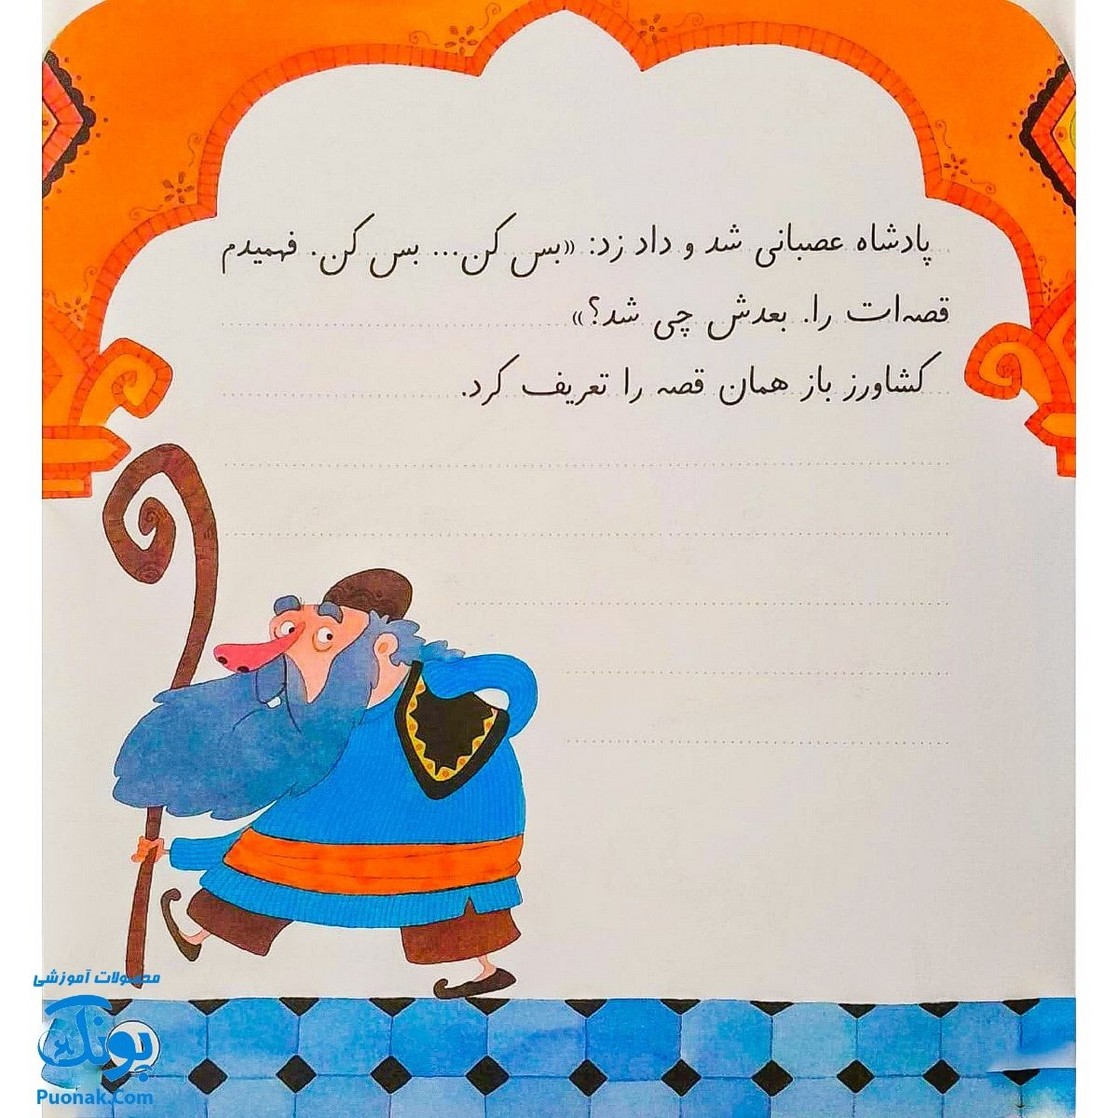 پادشاه عصبانی شد و داد زد: «بس کن... بس کن. فهمیدم
قصه‌ات را. بعدش چی شد؟»
کشاورز باز همان قصه را تعریف کرد.
محصولات آموزشی
پونک
Puonak.Com